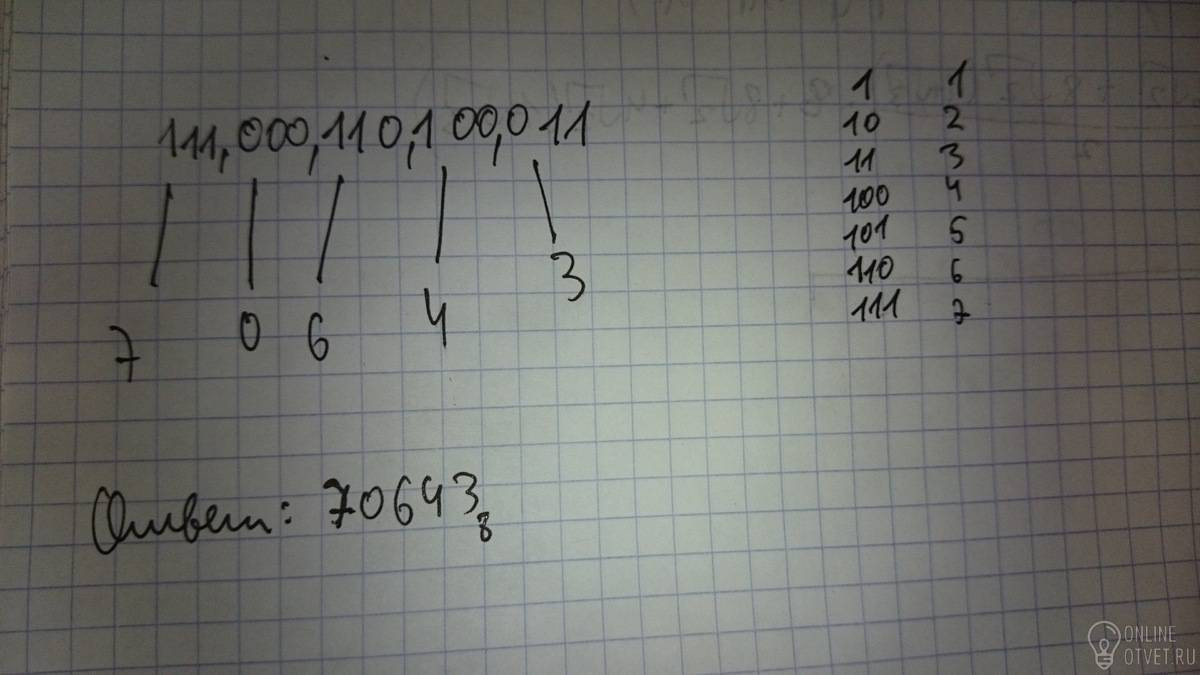 111,000,110,100,011
7 0 6 4 3
1 1
10 2
11 3
100 4
101 5
110 6
111 7
Ответ: 70643₈
ONLINE
OTVET.RU